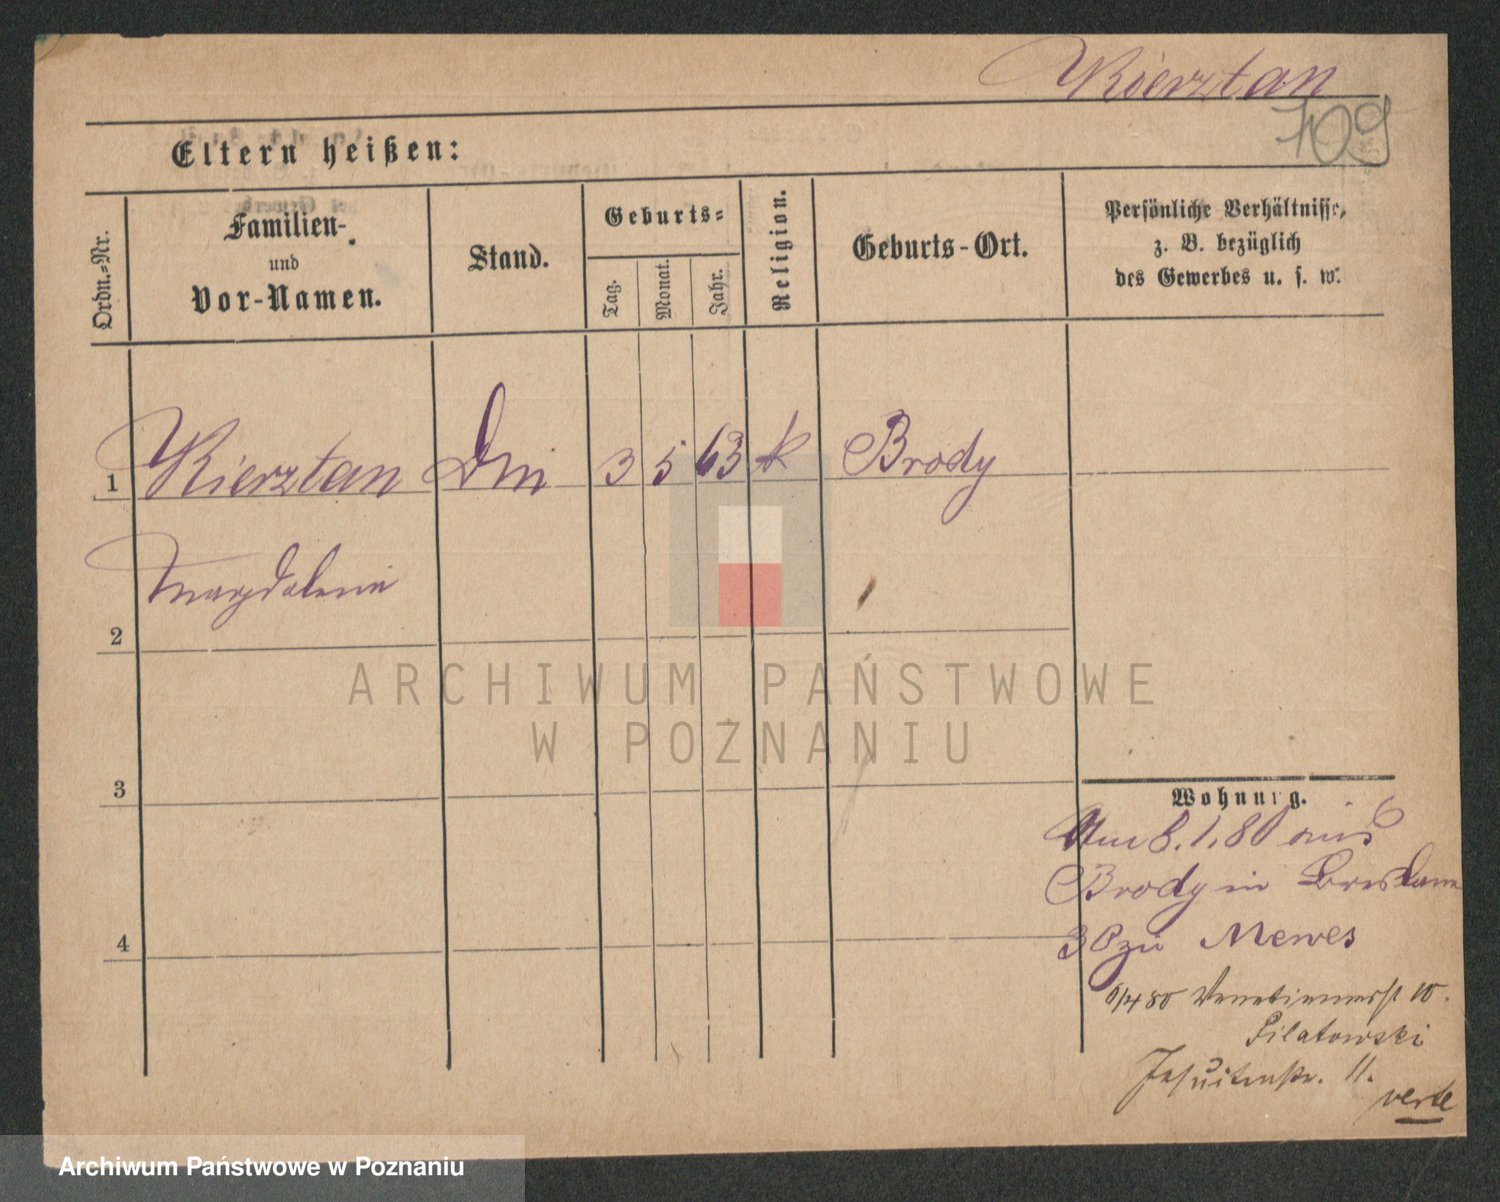 Kierztan
709
Eltern heißen:
Ordn.=Nr.
Familien-
und
Vor-Namen.
Stand.
Geburts=
Tag.
Monat.
Jahr.
Religion.
Geburts-Ort.
Persönliche Verhältnisse,
z. B. bezüglich
des Gewerbes u. s. w.
1 Kierztan 3 5 63 k Brody
Magdalena
2
3
4
Wohnung.
Am 8.1.80 aus
Brody in Breslauer
zu Mewes
80 Venetianerst 10.
Pilatowski
Jesuitenstr. 11.
verte
ARCHIWUM PAŃSTWOWE
W POZNANIU
Archiwum Państwowe w Poznaniu